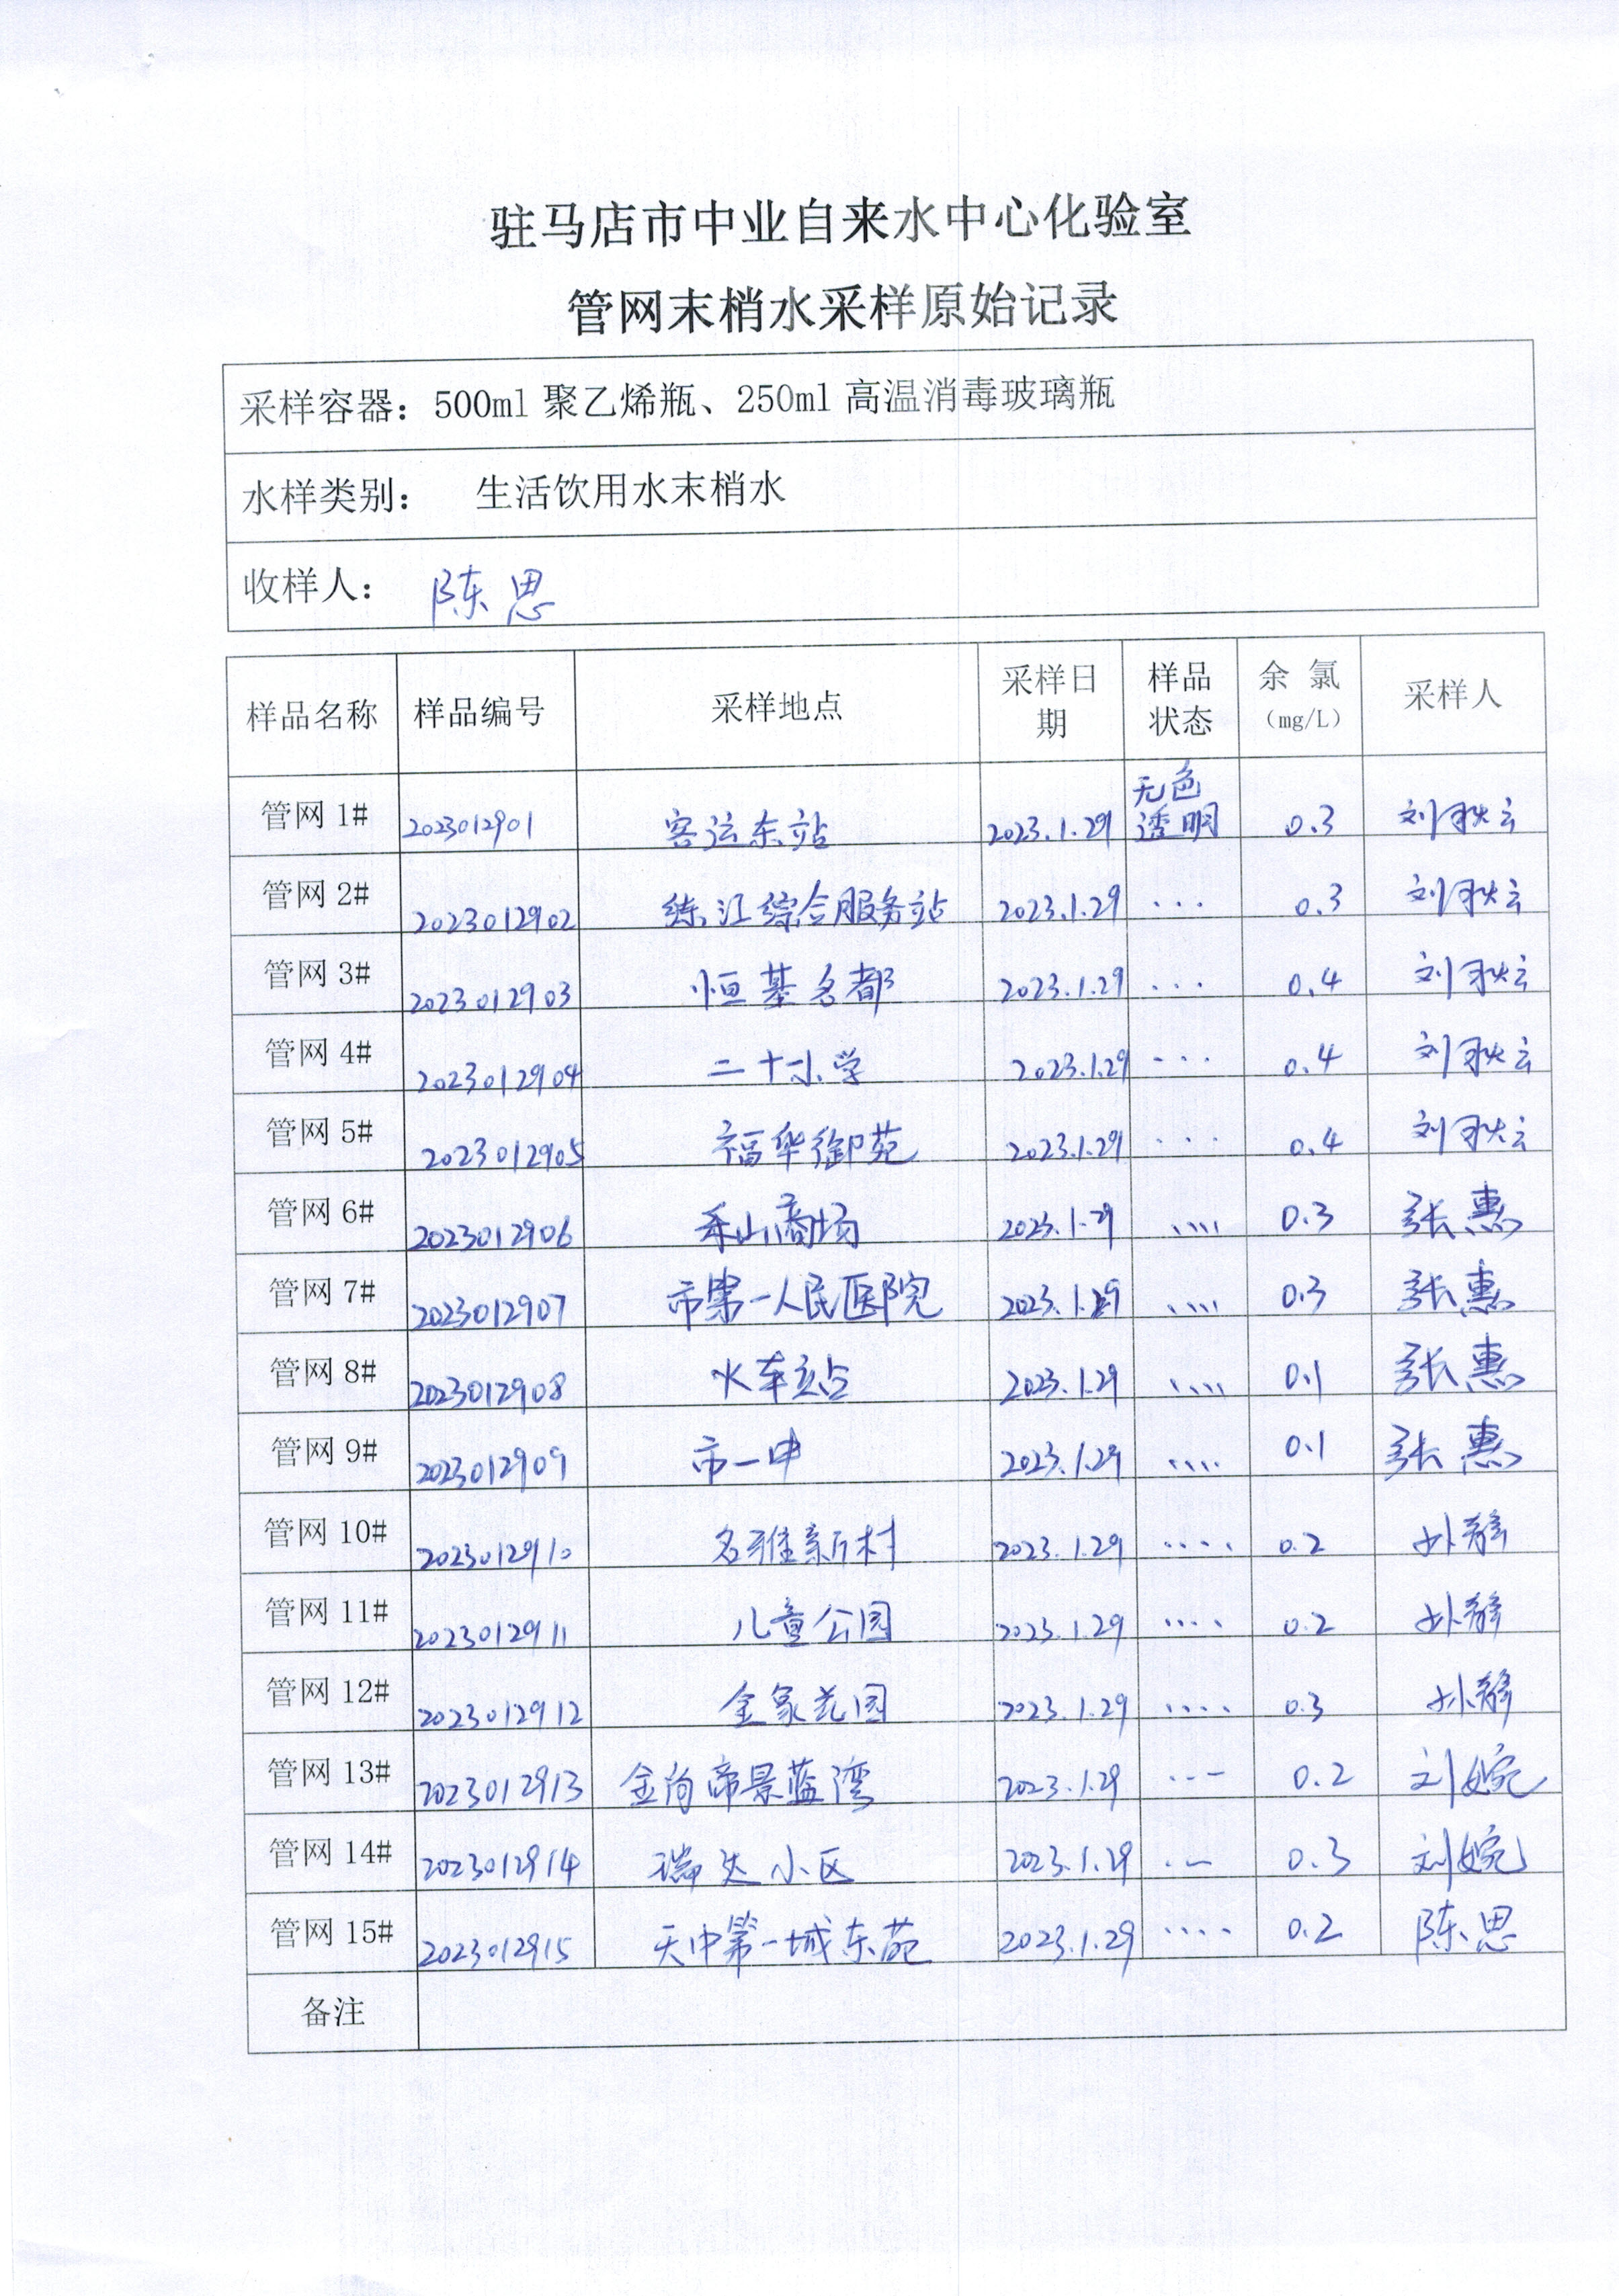 驻马店市中业自来水中心化验室
管网末梢水采样原始记录
采样容器：500ml 聚乙烯瓶、250ml 高温消毒玻璃瓶
水样类别： 生活饮用水末梢水
收样人： 陈思
样品名称 样品编号 采样地点 采样日期 样品状态 余氯（mg/L） 采样人
管网 1# 2023012901 客运东站 2023.1.29 无色透明 0.3 刘秋云
管网 2# 2023012902 练江综合服务站 2023.1.29 ... 0.3 刘秋云
管网 3# 2023012903 恒基名都 2023.1.29 ... 0.4 刘秋云
管网 4# 2023012904 二十小学 2023.1.29 ... 0.4 刘秋云
管网 5# 2023012905 福华御苑 2023.1.29 ... 0.4 刘秋云
管网 6# 2023012906 乐山商场 2023.1.29 .... 0.3 张惠
管网 7# 2023012907 市第一人民医院 2023.1.29 .... 0.3 张惠
管网 8# 2023012908 火车站 2023.1.29 .... 0.1 张惠
管网 9# 2023012909 市一中 2023.1.29 .... 0.1 张惠
管网 10# 2023012910 名雅新村 2023.1.29 .... 0.2 孙静
管网 11# 2023012911 儿童公园 2023.1.29 .... 0.2 孙静
管网 12# 2023012912 金象花园 2023.1.29 .... 0.3 孙静
管网 13# 2023012913 金尚帝景蓝湾 2023.1.29 ... 0.2 刘婉
管网 14# 2023012914 瑞达小区 2023.1.29 ... 0.3 刘婉
管网 15# 2023012915 天中第一城东苑 2023.1.29 .... 0.2 陈思
备注